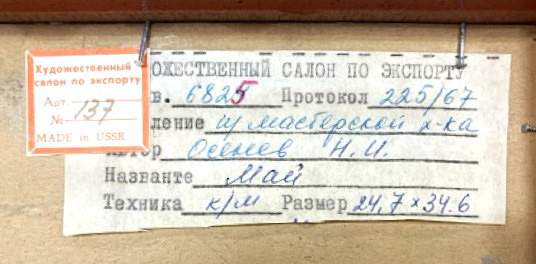 Художественный
салон по экспорту
Арт.
№ 137
MADE in USSR
ОЖЕСТВЕННЫЙ САЛОН ПО ЭКСПОРТУ
в. 6825 Протокол 225/67
ление из мастерской х-ка
Автор Осенев Н.И.
Названте Май
Техника к/м Размер 24,7 х 34.6